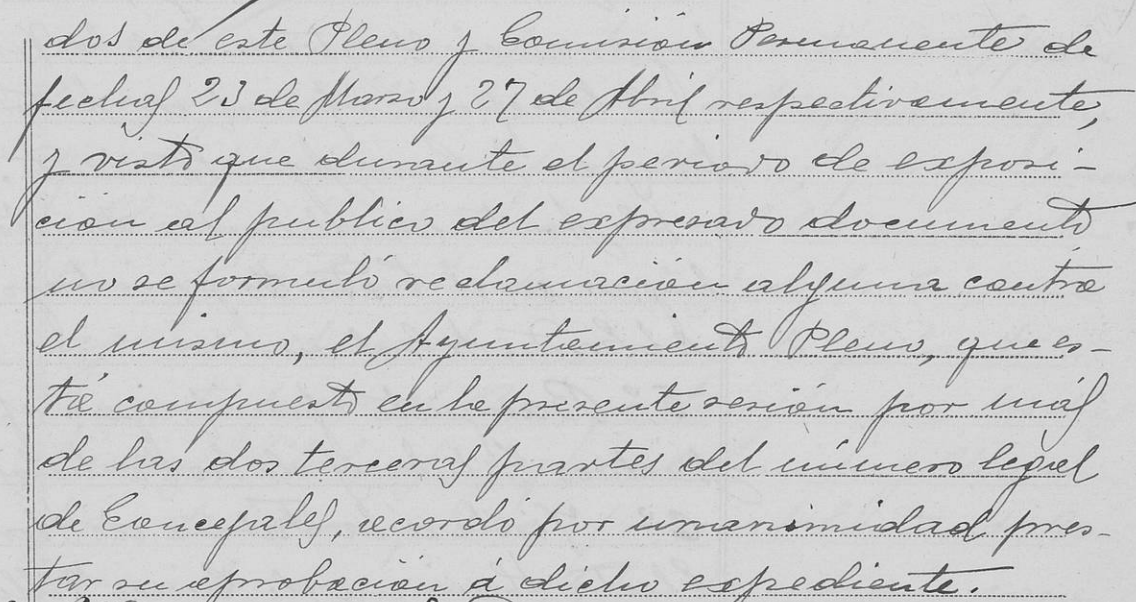 dos de este Pleno y Comisión Permanente de
fechas 23 de Marzo y 27 de Abril respectivamente,
y visto que durante el periodo de exposi-
ción al publico del expresado documento
no se formuló reclamación alguna contra
el mismo, el Ayuntamiento Pleno, que es-
tá compuesto en la presente sesión por más
de las dos terceras partes del número legal
de Concejales, acordó por unanimidad pres-
tar su aprobación á dicho expediente.